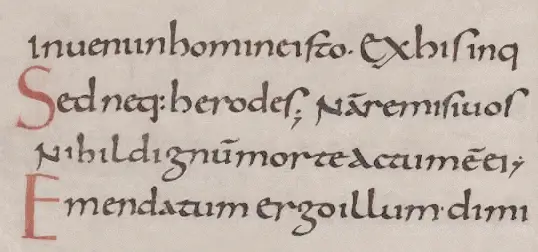 Inueni in homine isto. Ex his in q
Sed neq: herodes; Nā remisi uos
Nihil dignū morte actum ē ei;
Emendatum ergo illum· dimi